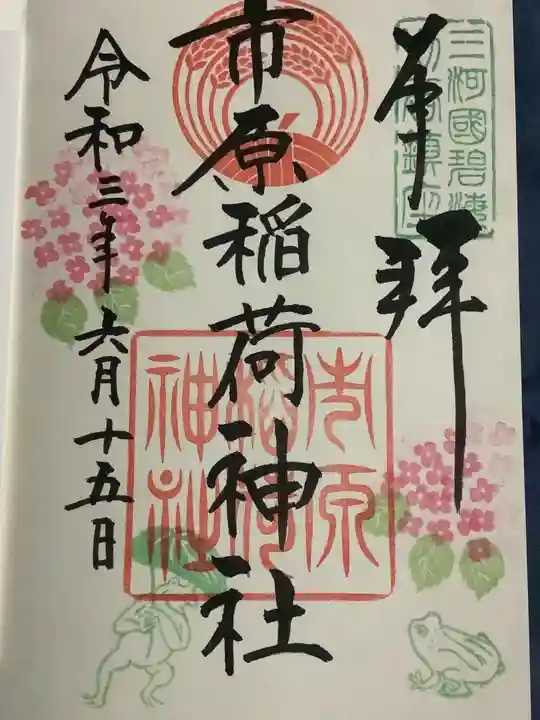 奉拝
三河國碧海
刈谷鎮座
市原稲荷神社
市原
稲荷
神社
令和三年六月十五日